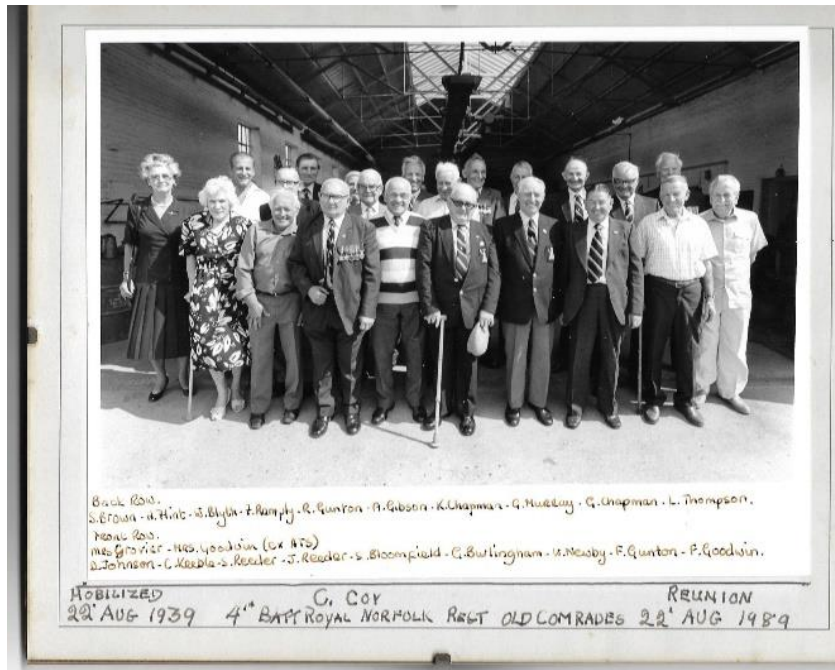 Back Row.
S.Brown - H.Flint - W.Blyth - F.Rumply - R.Gunton - A.Gibson - K.Chapman - G.Murray - G.Chapman - L.Thompson.
Front Row.
Mrs Grovier - Mrs. Goodwin (ex ATS)
D.Johnson - C.Keeble - S.Reeder - J.Reeder - S.Bloomfield - G.Burlingham - W.Newby - F.Gunton - F.Goodwin.
MOBILIZED C. COY REUNION
22' AUG 1939 4'th BATT ROYAL NORFOLK REGT OLD COMRADES 22' AUG 1989